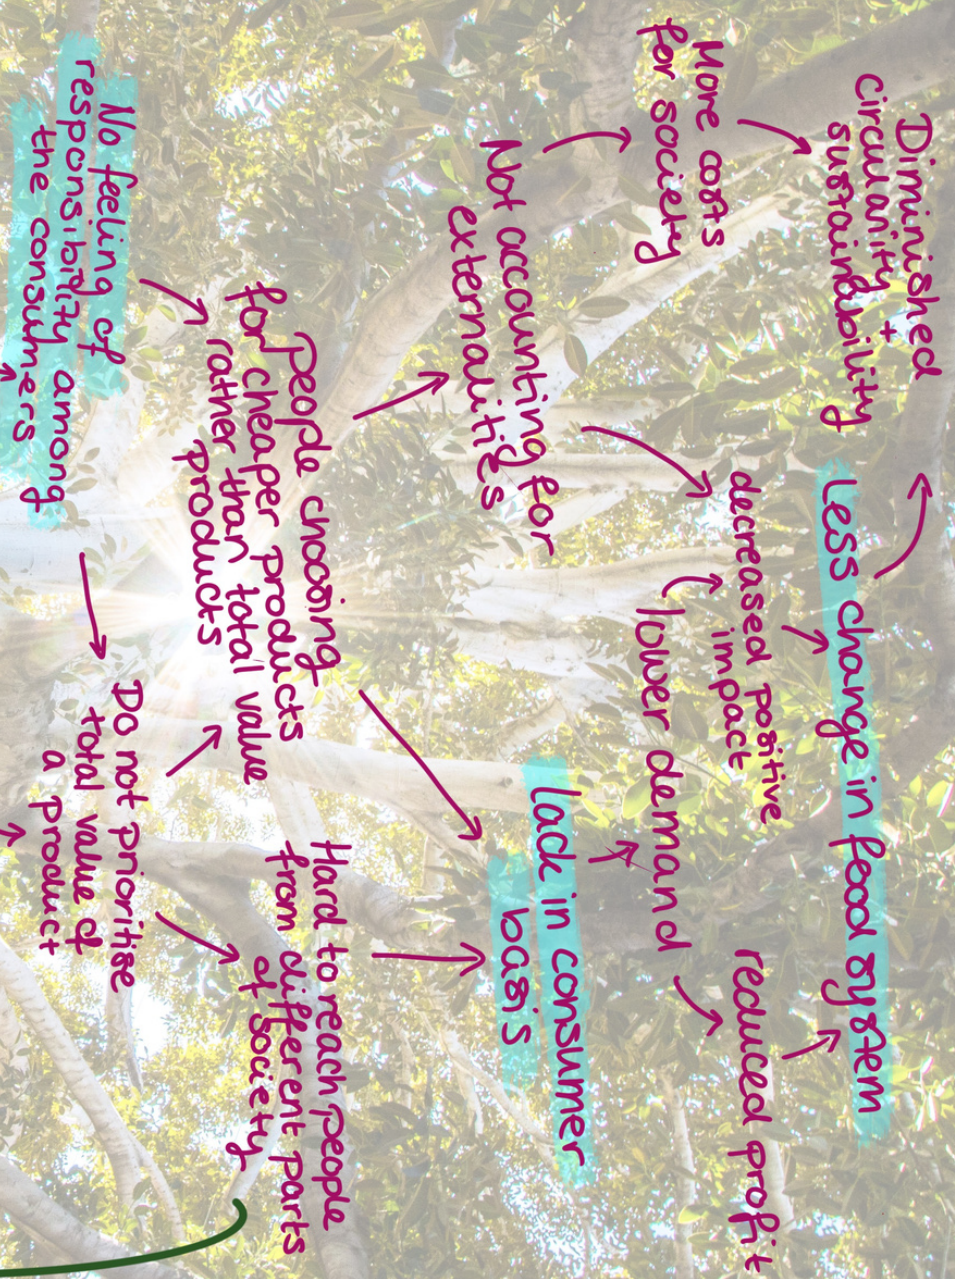 Diminished
circularity +
sustainability
Less change in food system
More costs
for society
decreased positive
impact
reduced profit
lower demand
Not accounting for
externalities
lack in consumer
basis
People choosing
for cheaper products
rather than total value
products
Hard to reach people
from different parts
of society
No feeling of
responsibility among
the consumers
Do not prioritise
total value of
a product